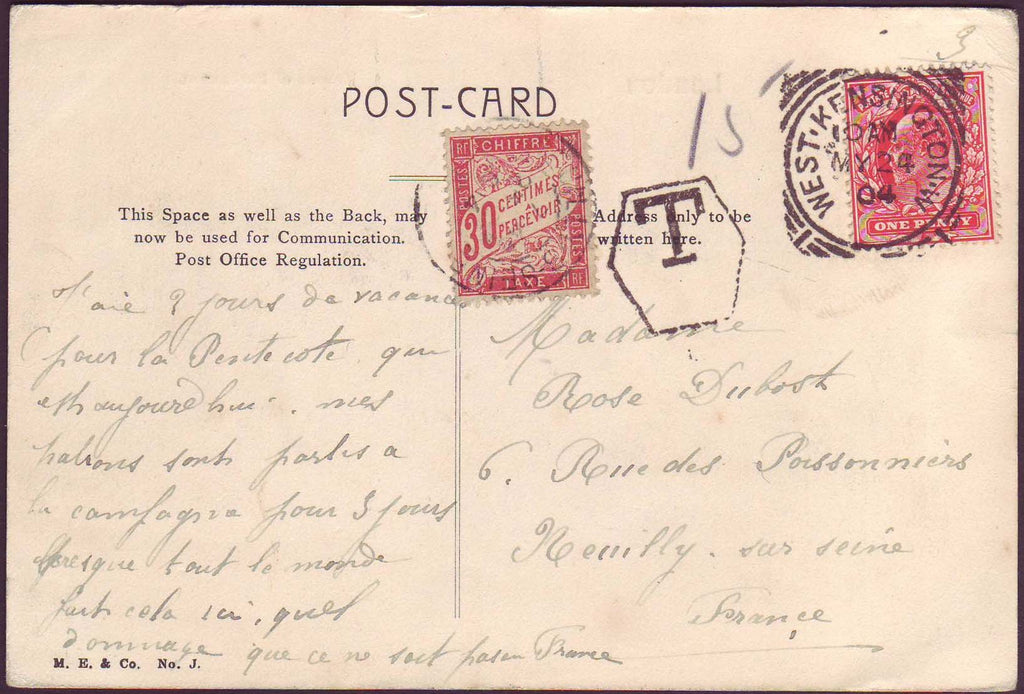 3
POST-CARD
15
WEST·KENSINGTON·W
10 AM
MY 24
04
ONE PENNY
RF CHIFFRE
POSTES
30 CENTIMES
À
PERCEVOIR
POSTES
TAXE RF
T
This Space as well as the Back, may
now be used for Communication.
Post Office Regulation.
Address only to be
written here.
J'aie 2 jours de vacance
pour la Pentecote qui
est aujourd'hui. mes
patrons sont partis a
la campagne pour 3 jours
presque tout le monde
fait cela ici, quel
dommage que ce ne soit pas en France
Madame
Rose Dubost
6. Rue des Poissonniers
Neuilly. sur seine
France
M. E. & Co. No. J.